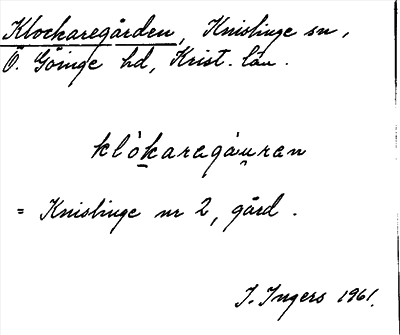 Klockaregården, Knislinge sn,
Ö. Göinge hd, Krist. län.
klòkaregáu̯ran
= Knislinge nr 2, gård.
I. Ingers 1961.